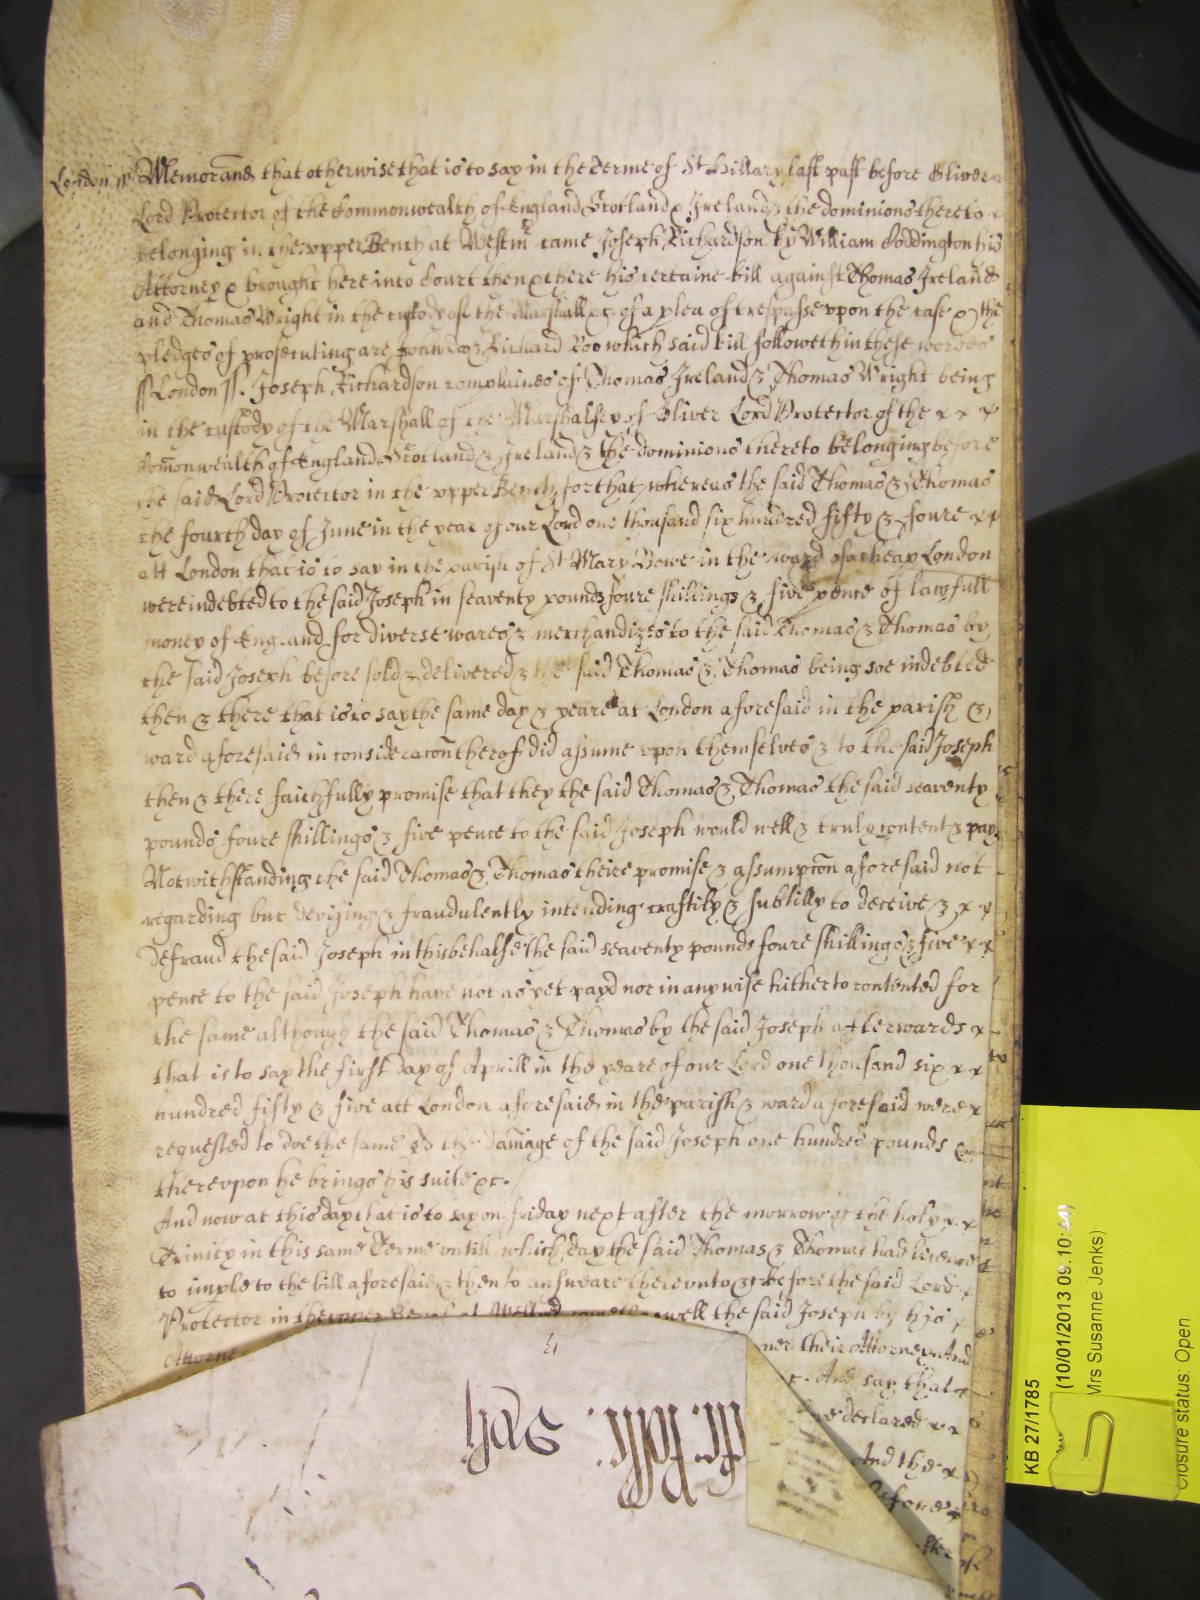 London ss Memorand that otherwise that is to say in the Terme of St Hillary last past before Oliver
Lord Protector of the Commonwealth of England Scotland & Ireland & the dominions thereto
belonging in the upper Bench at Westm came Joseph Richardson by William Boddington his
Attorney & brought here into Court then & there his certaine bill against Thomas Ireland
and Thomas Wright in the custody of the Marshall &c of a plea of trespasse upon the case & the
pledges of prosecuting are John Doo & Richard Roo which said bill followeth in these wordes
ss London ss. Joseph Richardson complaines of Thomas Ireland & Thomas Wright being
in the custody of the Marshall of the Marshalsey of Oliver Lord Protector of the x x x
Comonwealth of England Scotland & Ireland & the dominions thereto belonging before
the said Lord Protector in the upper Bench for that whereas the said Thomas & Thomas
the fourth day of June in the year of our Lord one thousand six hundred fifty & foure x x
att London that is to say in the parish of St Mary Bowe in the ward of Cheap London
were indebted to the said Joseph in seaventy pounds foure shillings & five pence of lawfull
money of England for diverse wares & merchandizes to the said Thomas & Thomas by
the said Joseph before sold & delivered & the said Thomas & Thomas being soe indebted
then & there that is to say the same day & yeare at London aforesaid in the parish &
ward aforesaid in consideracon therof did assume upon themselves & to the said Joseph
then & there faithfully promise that they the said Thomas & Thomas the said seaventy
pounds foure shillings & five pence to the said Joseph would well & truly content & pay
Notwithstanding the said Thomas & Thomas theire promise & assumpcon aforesaid not
regarding but devising & fraudulently intending craftily & subtilly to deceive & x x
defraud the said Joseph in this behalfe the said seaventy pounds foure shillings & five x x
pence to the said Joseph have not as yet payd nor in any wise hitherto contented for
the same although the said Thomas & Thomas by the said Joseph afterwards x
that is to say the first day of Aprill in the yeare of our Lord one thousand six x x
hundred fifty & five att London aforesaid in the parish & ward aforesaid were x
requested to doe the same To the damage of the said Joseph one hundred pounds
thereupon he brings his suite &c.
And now at this day that is to say on friday next after the morrow of the holy x x
Trinity in this same Terme untill which day the said Thomas & Thomas had licence
to imple to the bill aforesaid & then to answare thereunto &c before the said Lord x
Protector in the upper well the said Joseph by his x
Attorney their Attorney And
And say that
declared x x
And the x
KB 27/1785
(10/01/2013 09:10:44)
Mrs Susanne Jenks)
Closure status: Open